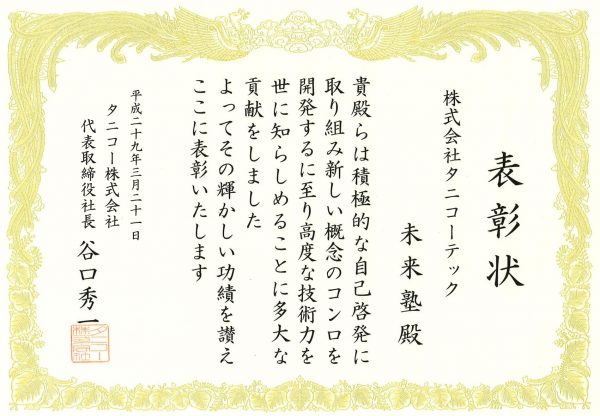 表彰状
株式会社タニコーテック
未来塾殿
貴殿らは積極的な自己啓発に
取り組み新しい概念のコンロを
開発するに至り高度な技術力を
世に知らしめることに多大な
貢献をしました
よってその輝かしい功績を讃え
ここに表彰いたします
平成二十九年三月二十一日
タニコー株式会社
代表取締役社長 谷口秀一